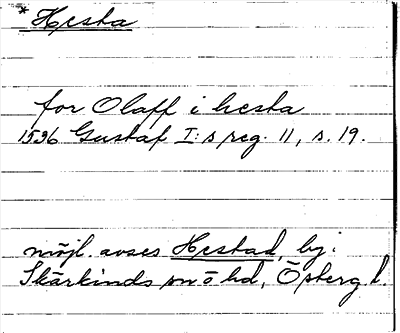 * Hesta
for Olaff i hesta
1536 Gustaf I:s reg. 11, s. 19.
möjl. avses Hestad, by i
Skärkinds sn o hd, Östergl.